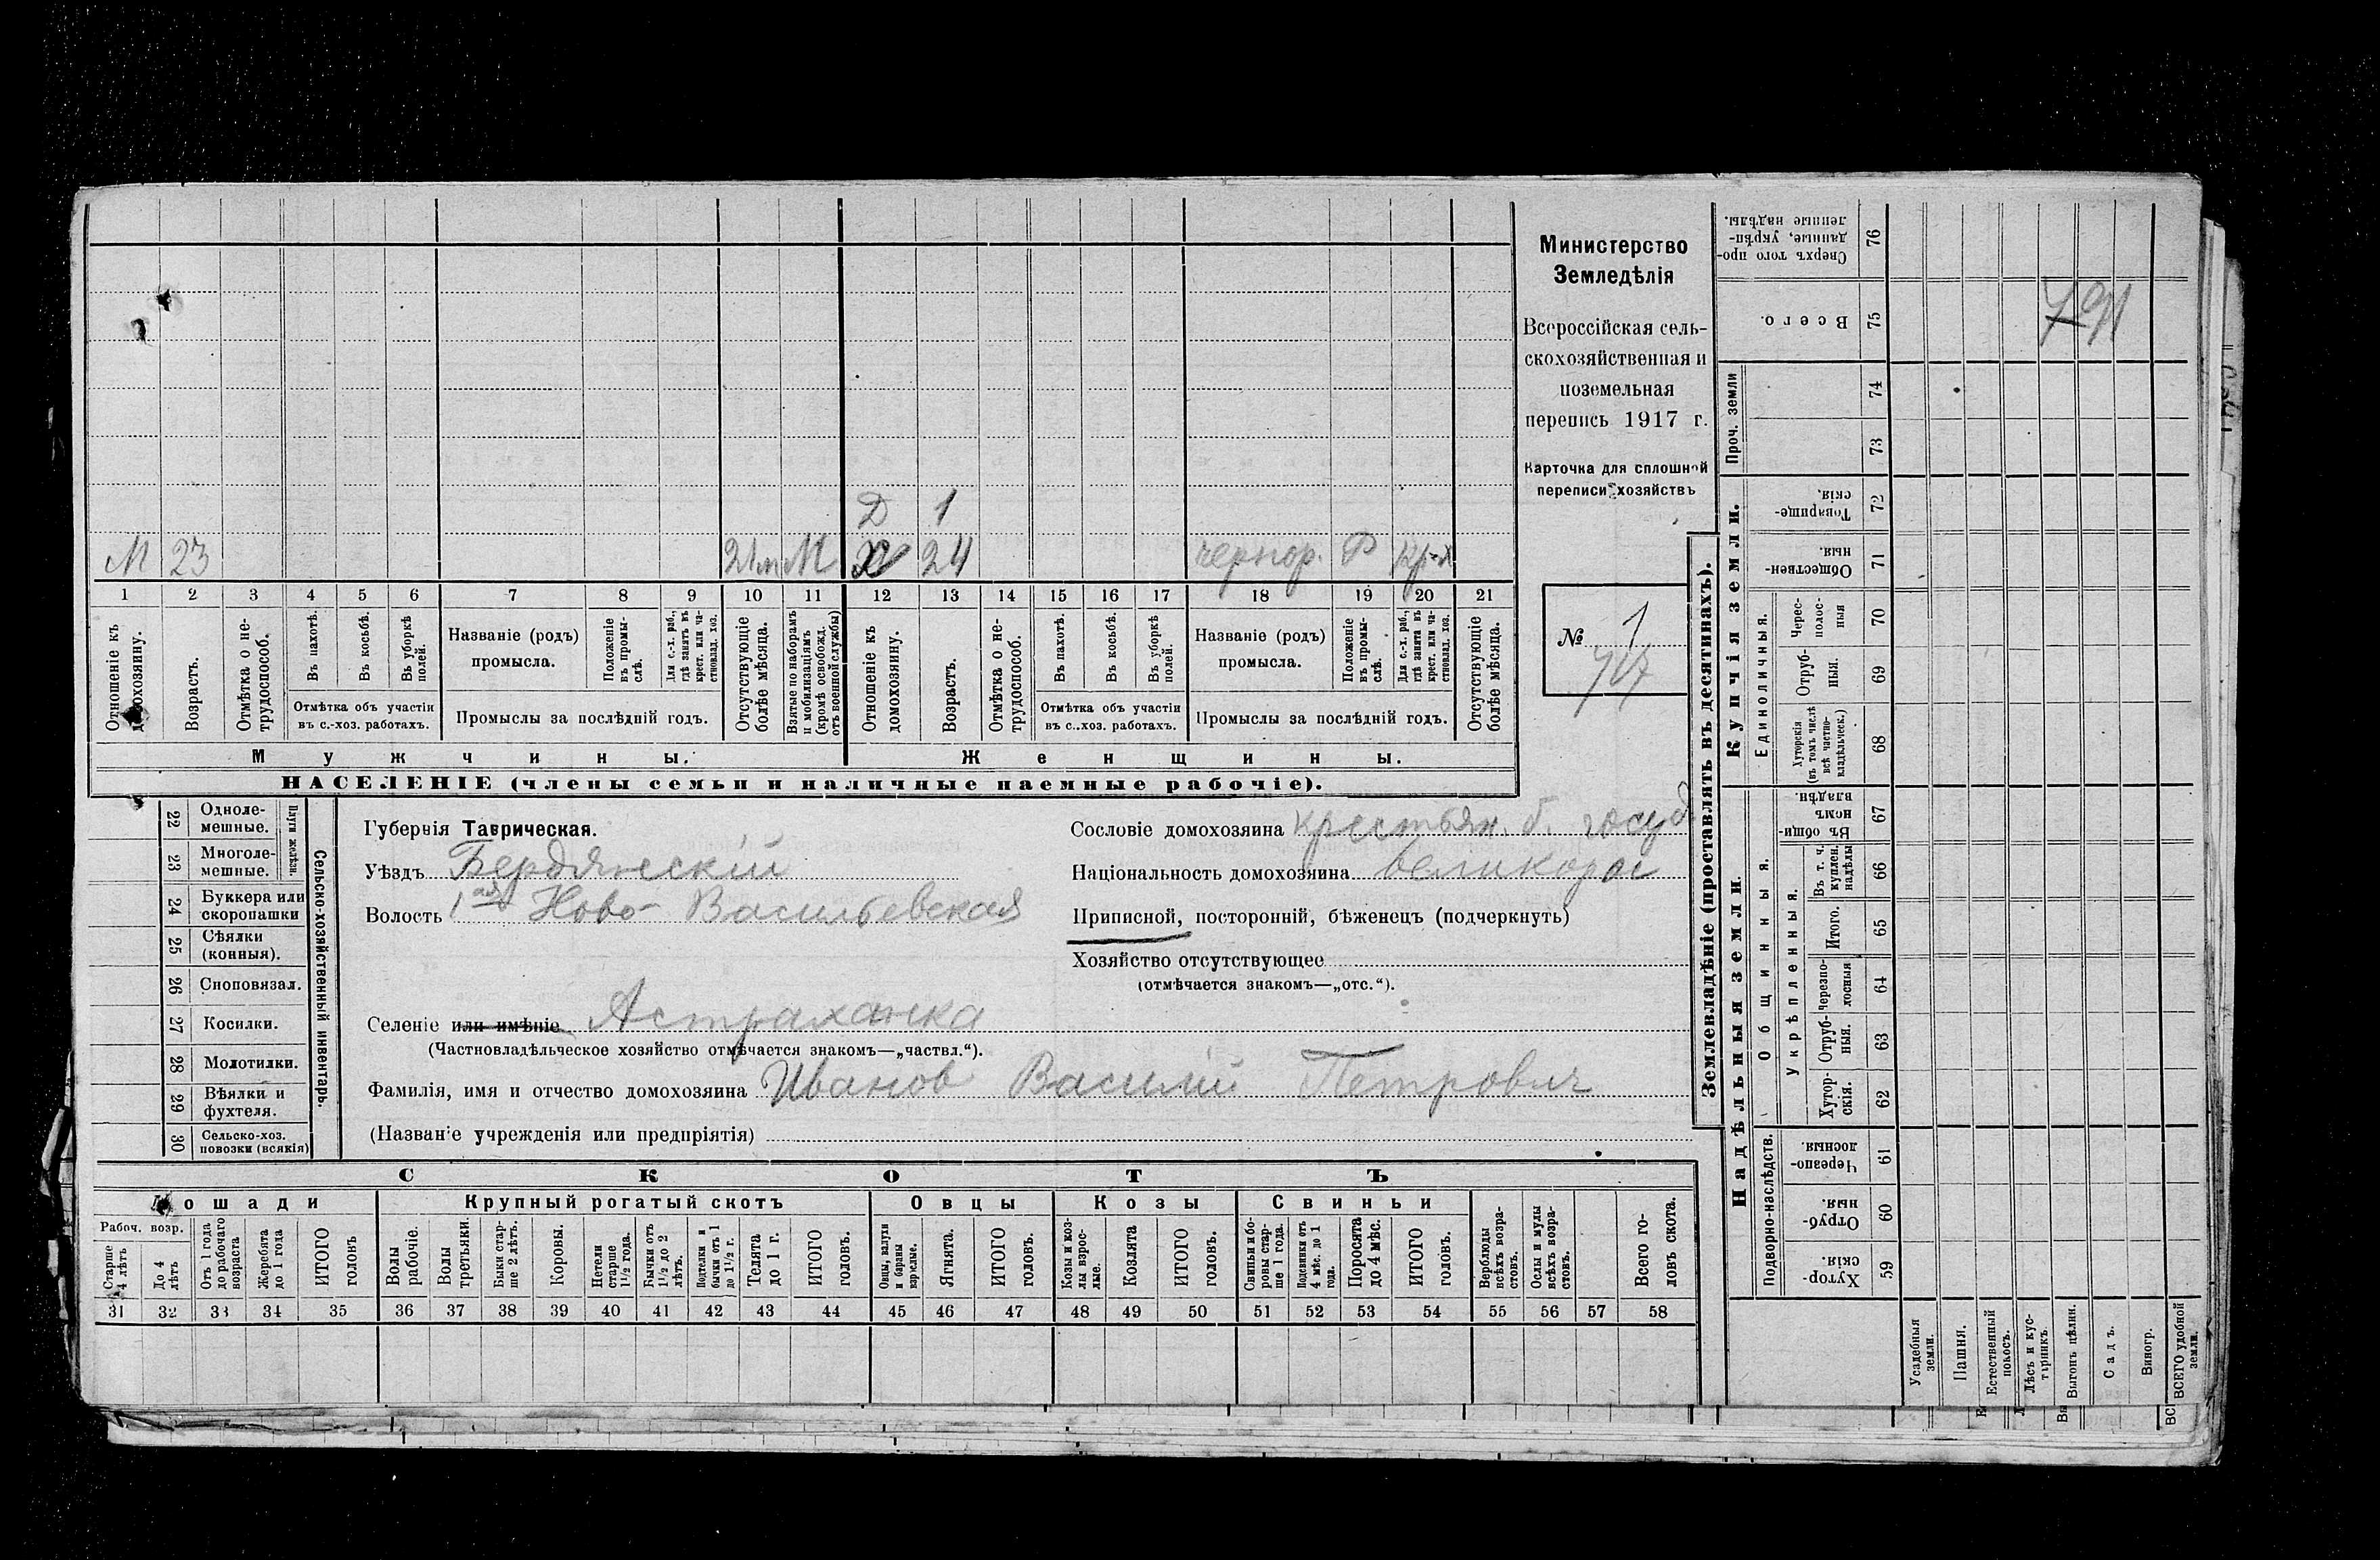 Министерство
Земледѣлія
Всероссійская сель-
скохозяйственная и
поземельная
перепись 1917 г.
Карточка для сплошной
переписи хозяйствъ
№ 1
Д 1
М 23 М Х 24 чернор. Р кр-х
1 2 3 4 5 6 7 8 9 10 11 12 13 14 15 16 17 18 19 20 21
Отношеніе къ домохозяину.
Возрастъ.
Отмѣтка о не-трудоспособ.
Въ пахотѣ.
Въ косьбѣ.
Въ уборкѣ полей.
Отмѣтка объ участіи
въ с.-хоз. работахъ.
Названіе (родъ)
промысла.
Положеніе въ промы-слѣ.
Для с.-х. раб., гдѣ занятъ въ крест. или ча-стновлад. хоз.
Промыслы за послѣдній годъ.
Отсутствующіе болѣе мѣсяца.
Взятые по наборамъ и мобилизаціямъ (кромѣ освобожд. отъ военной службы)
Отношеніе къ домохозяину.
Возрастъ.
Отмѣтка о не-трудоспособ.
Въ пахотѣ.
Въ косьбѣ.
Въ уборкѣ полей.
Отмѣтка объ участіи
въ с..хоз. работахъ.
Названіе (родъ)
промысла.
Положеніе въ промы-слѣ.
Для с.-х. раб., гдѣ занята въ крест. или ча-стновлад. хоз.
Промыслы за послѣдній годъ.
Отсутствующіе болѣе мѣсяца.
Мужчины.
Женщины.
НАСЕЛЕНІЕ (члены семьи и наличные наемные рабочіе).
Сельско-хозяйственный инвентарь.
Плуги желѣзн.
22 Одноле-мешные.
23 Многоле-мешные.
24 Буккера или скоропашки
25 Сѣялки (конныя).
26 Сноповязал.
27 Косилки.
28 Молотилки.
29 Вѣялки и фухтеля.
30 Сельско-хоз. повозки (всякія)
Губернія Таврическая.
Уѣздъ Бердянскій
Волость 1ая Ново-Васильевская
Селеніе или имѣніе Астраханка
(Частновладѣльческое хозяйство отмѣчается знакомъ—„частвл.“).
Фамилія, имя и отчество домохозяина Иванов Василій Петрович
(Названіе учрежденія или предпріятія)
Сословіе домохозяина крестьян. б. госуд
Національность домохозяина великорос
Приписной, посторонній, бѣженецъ (подчеркнуть)
Хозяйство отсутствующее
(отмѣчается знакомъ—„отс.“).
СКОТЪ
Лошади
Крупный рогатый скотъ
Овцы
Козы
Свиньи
Рабоч. возр.
Старше 4 лѣтъ
До 4 лѣтъ
Отъ 1 года до рабочаго возраста
Жеребята до 1 года
ИТОГО головъ
Волы рабочіе.
Волы третьяки.
Быки стар-ше 2 лѣтъ.
Коровы.
Нетели старше 1½ года.
Бычки отъ 1½ до 2 лѣтъ.
Подтелки и бычки отъ 1 до 1½ г.
Телята до 1 г.
ИТОГО головъ.
Овцы, валухи и бараны взрослые.
Ягнята.
ИТОГО головъ.
Козы и коз-лы взрос-лые.
Козлята
ИТОГО головъ.
Свиньи и бо-ровы стар-ше 1 года.
Подсвинки отъ 4 мѣс. до 1 года.
Поросята до 4 мѣс.
ИТОГО головъ.
Верблюды всѣхъ возра-стовъ.
Ослы и мулы всѣхъ возра-стовъ.
Всего го-ловъ скота.
31 32 33 34 35 36 37 38 39 40 41 42 43 44 45 46 47 48 49 50 51 52 53 54 55 56 57 58
Землевладѣніе (проставлять въ десятинахъ).
Надѣльныя земли.
Купчія земли.
Проч. земли
Подворно-наслѣдств.
Общинныя.
Укрѣпленныя.
Единоличныя.
Хутор-скія. 59
Отруб-ныя. 60
Черезпо-лосныя. 61
Хутор-скія. 62
Отруб-ныя. 63
Черезпо-лосныя 64
Итого. 65
Въ т. ч. куплен. надѣлы 66
Въ общи-номъ владѣн. 67
Хуторскія (въ томъ числѣ всѣ частно-владѣльческ.) 68
Отруб-ныя. 69
Черес-полос-ныя 70
Обществен-ныя. 71
Товарище-скія. 72
73
74
Всего. 75
Сверхъ того про-данные, укрѣп-ленные надѣлы. 76
Усадебныя земли.
Пашня.
Естественный покосъ.
Лѣсъ и кус-тарникъ.
Выгонъ цѣлин.
Садъ.
Виногр.
ВСЕГО удобной земли.